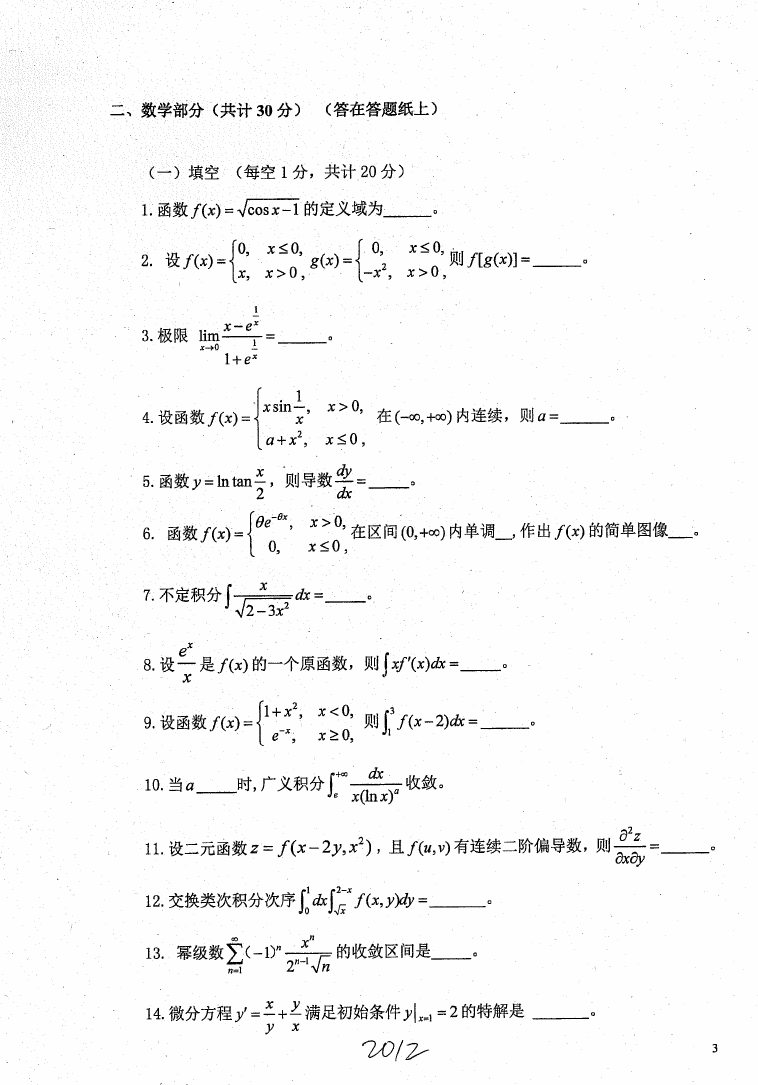 二、数学部分（共计 30 分） （答在答题纸上）
（一）填空 （每空 1 分，共计 20 分）
1. 函数 f(x) = √(cos x − 1) 的定义域为______。
2. 设 f(x) = {0, x≤0, x, x>0, g(x) = {0, x≤0, −x², x>0, 则 f[g(x)] = ______。
3. 极限 lim_{x→0} (x − e^{1/x})/(1 + e^{1/x}) = ______。
4. 设函数 f(x) = {x sin 1/x, x>0, a + x², x≤0, 在 (−∞, +∞) 内连续，则 a = ______。
5. 函数 y = ln tan x/2，则导数 dy/dx = _____。
6. 函数 f(x) = {θe^{−θx}, x>0, 0, x≤0, 在区间 (0, +∞) 内单调__, 作出 f(x) 的简单图像___。
7. 不定积分 ∫ x/√(2−3x²) dx = _____。
8. 设 e^x/x 是 f(x) 的一个原函数，则 ∫ xf′(x)dx = _____。
9. 设函数 f(x) = {1 + x², x<0, e^{−x}, x≥0, 则 ∫_1^3 f(x−2)dx = ______。
10. 当 a _____时, 广义积分 ∫_e^{+∞} dx/(x(ln x)^a) 收敛。
11. 设二元函数 z = f(x−2y, x²)，且 f(u,v) 有连续二阶偏导数，则 ∂²z/∂x∂y = ______。
12. 交换类次积分次序 ∫_0^1 dx ∫_{√x}^{2−x} f(x,y)dy = _______。
13. 幂级数 ∑_{n=1}^∞ (−1)^n x^n/(2^{n−1}√n) 的收敛区间是_____。
14. 微分方程 y′ = x/y + y/x 满足初始条件 y|_{x=1} = 2 的特解是 _______。
2012
3